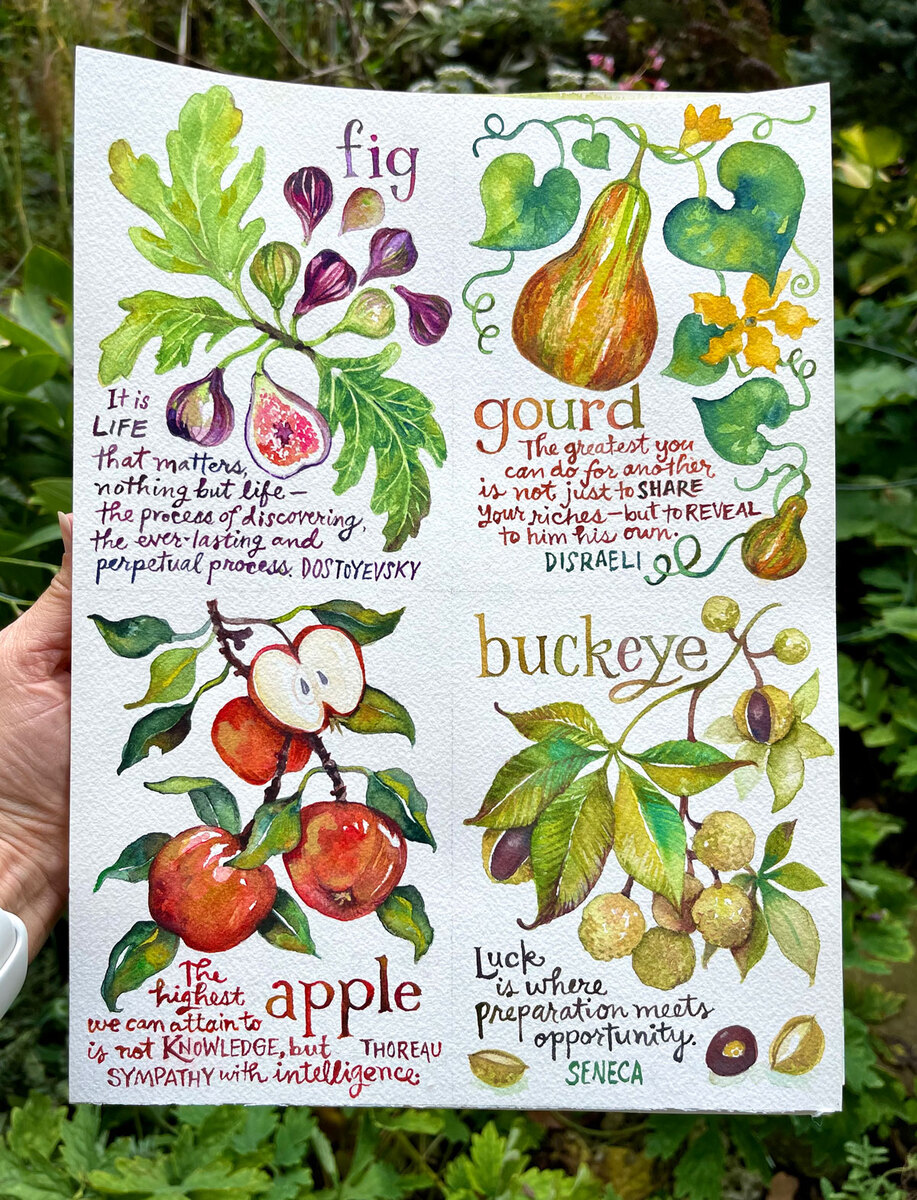 fig
It is
LIFE
that matters,
nothing but life —
the process of discovering,
the ever-lasting and
perpetual process. DOSTOYEVSKY
gourd
The greatest you
can do for another
is not just to SHARE
your riches—but to REVEAL
to him his own.
DISRAELI
apple
The
highest
we can attain to
is not KNOWLEDGE, but
SYMPATHY with intelligence.
THOREAU
buckeye
Luck
is where
preparation meets
opportunity.
SENECA